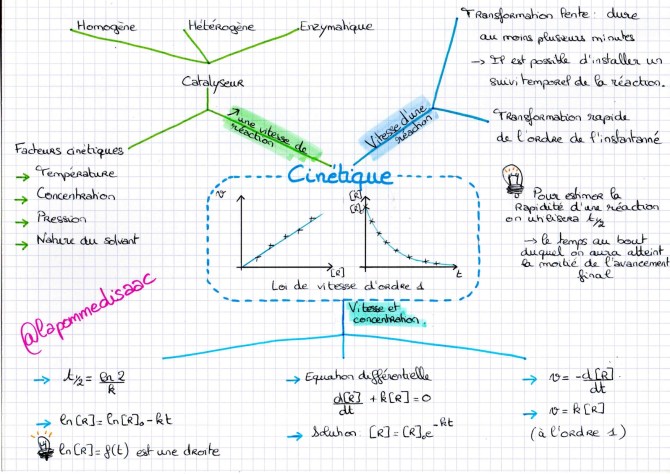 Homogène
Hétérogène
Enzymatique
Catalyseur
Facteurs cinétiques
→ Température
→ Concentration
→ Pression
→ Nature du solvant
↗ une vitesse de
réaction
Vitesse d'une
réaction
Transformation lente : dure
au moins plusieurs minutes
→ Il est possible d'installer un
suivi temporel de la réaction.
Transformation rapide
de l'ordre de l'instantané
Pour estimer la
Rapidité d'une réaction
on utilisera t1/2
→ le temps au bout
duquel on aura atteint
la moitié de l'avancement
final
Cinétique
v
[R]
[R]
[R]₀
t
Loi de vitesse d'ordre 1
@lapommedisaac
Vitesse et
concentration
→ t1/2 = ln 2 / k
→ ln[R] = ln[R]₀ - kt
ln[R] = f(t) est une droite
→ Equation différentielle
d[R]/dt + k[R] = 0
→ Solution [R] = [R]₀e^-kt
→ v = -d[R]/dt
→ v = k[R]
(à l'ordre 1)